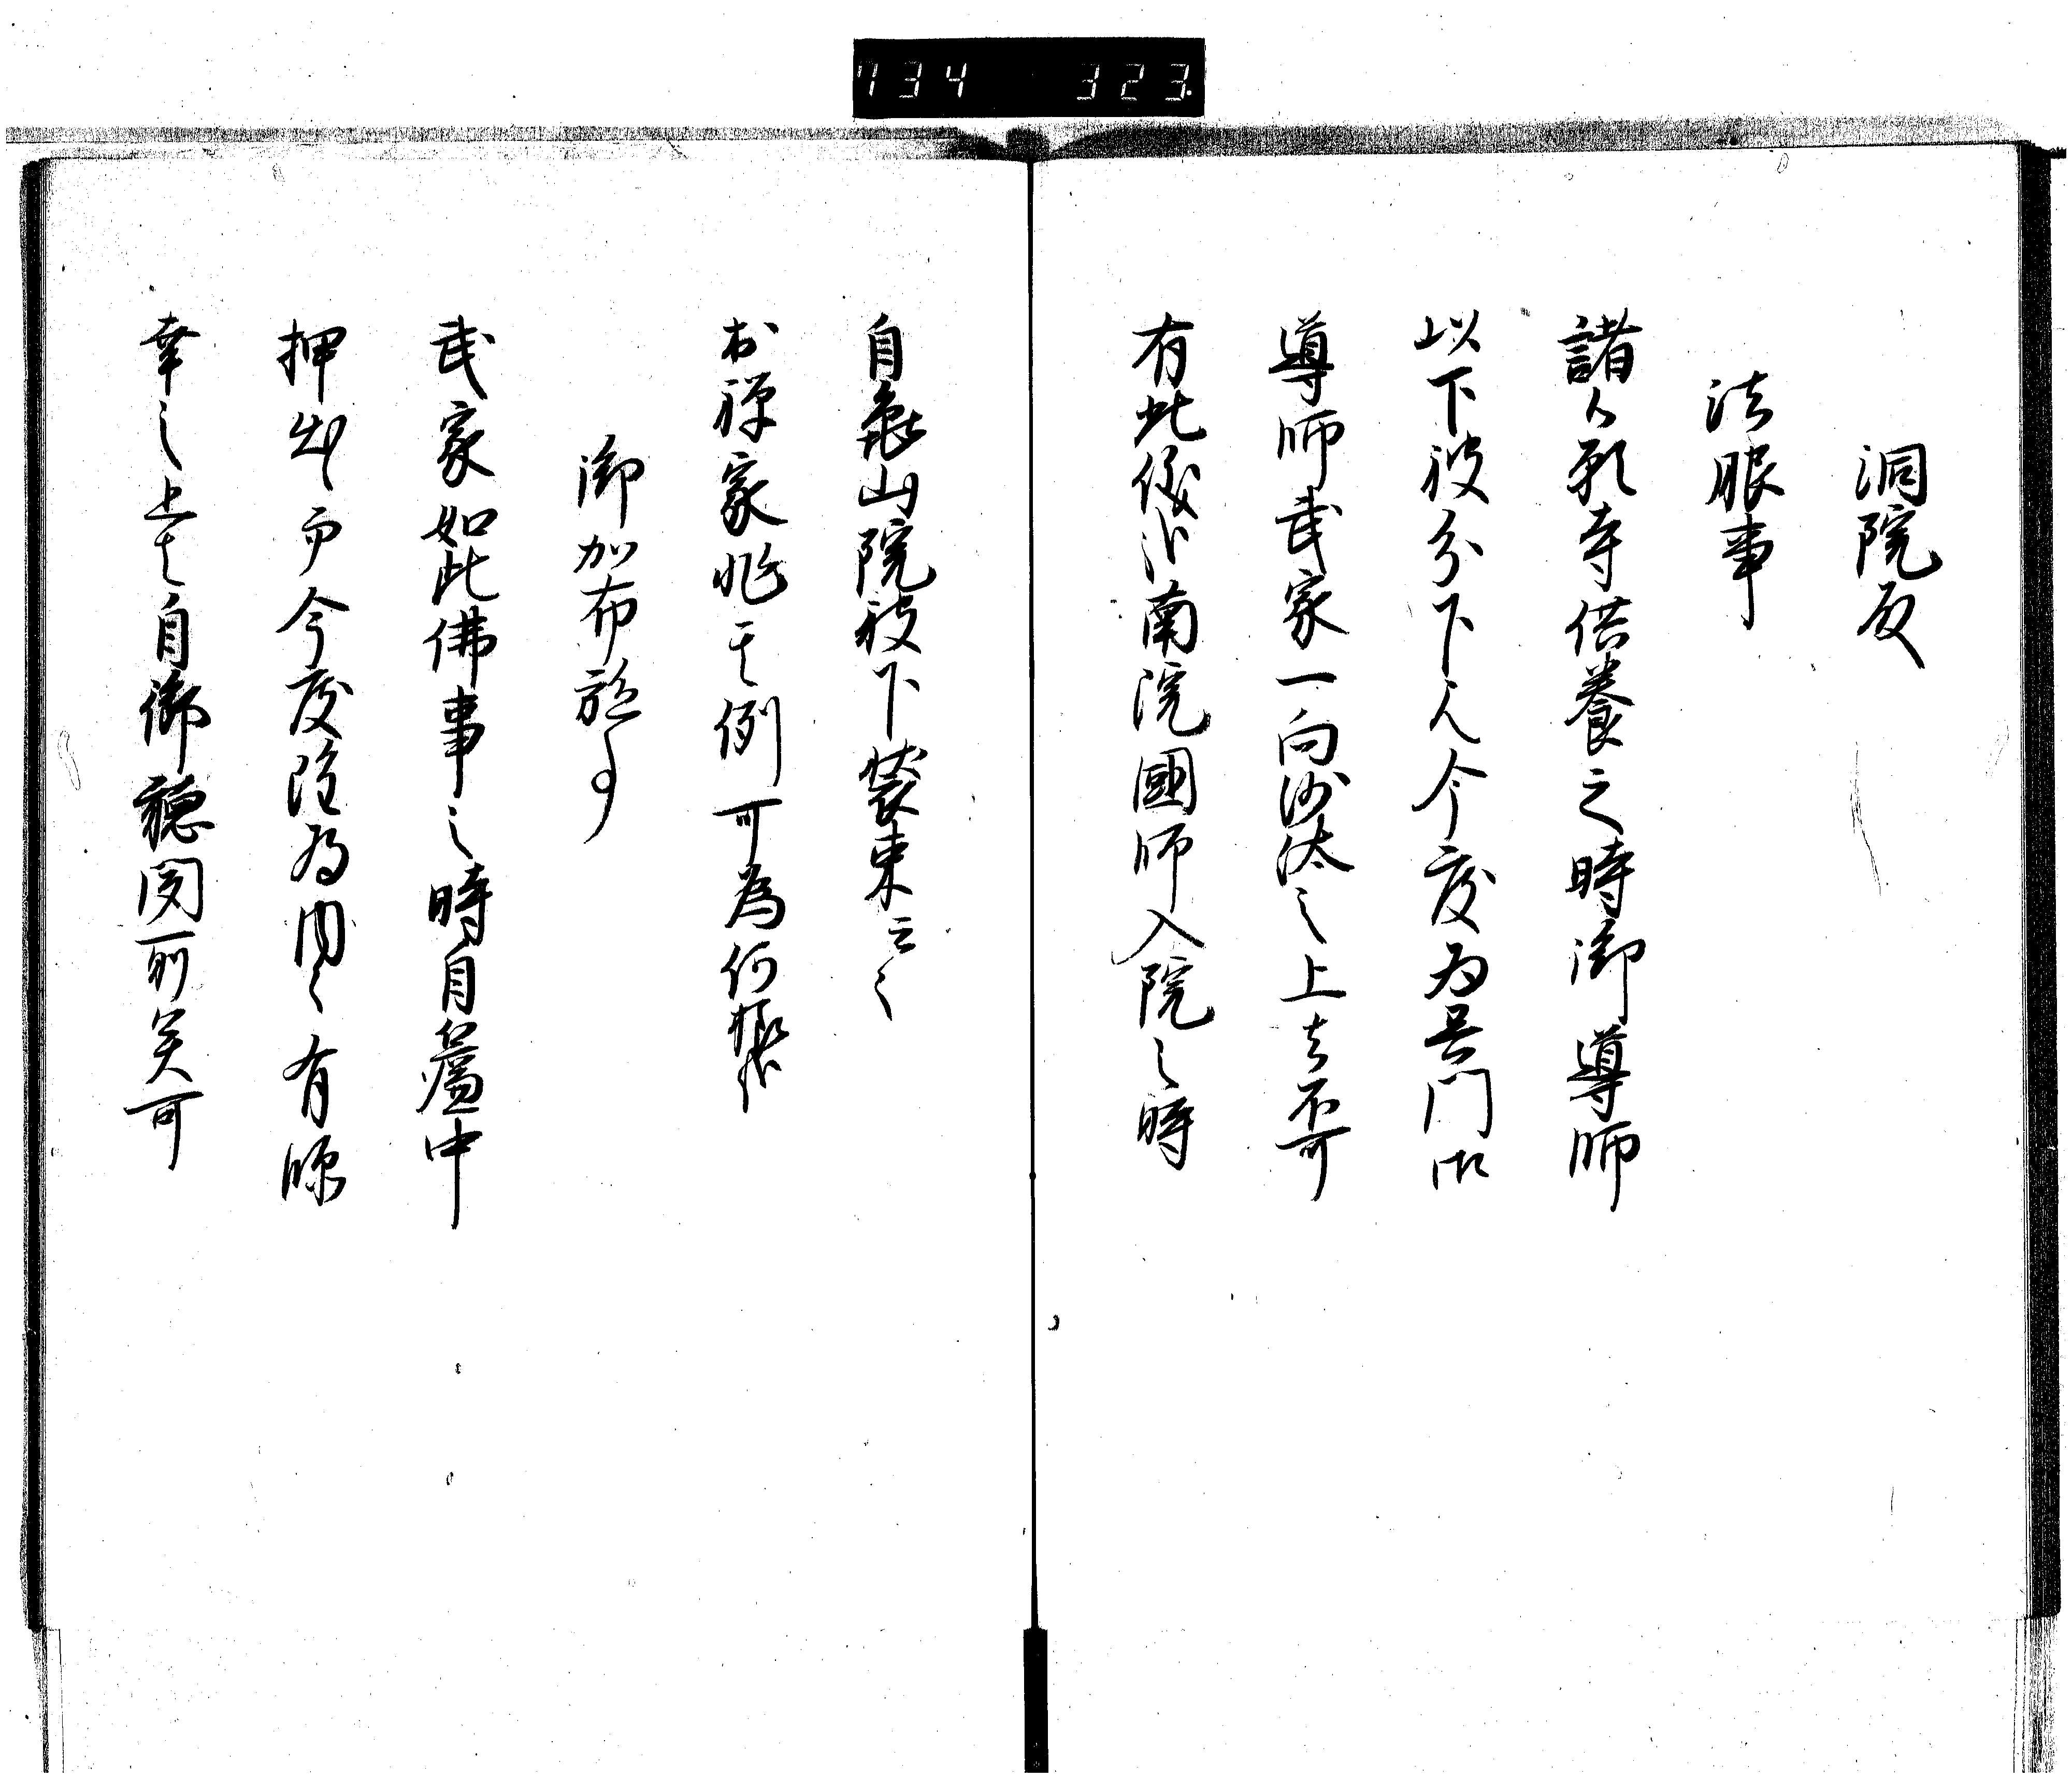 734 323
洞院殿
法服事
諸人願寺供養之時御導師
以下被分下之今度為異門御
導師武家一向沙汰之上者不可
有此儀歟南院國師入院之時
自龜山院被下裝束云々
於禅家非其例可為何様哉
御加布施事
武家如此佛事之時自簾中
押出而今度雖為内々有臨
幸之上者自御聴聞所矣可